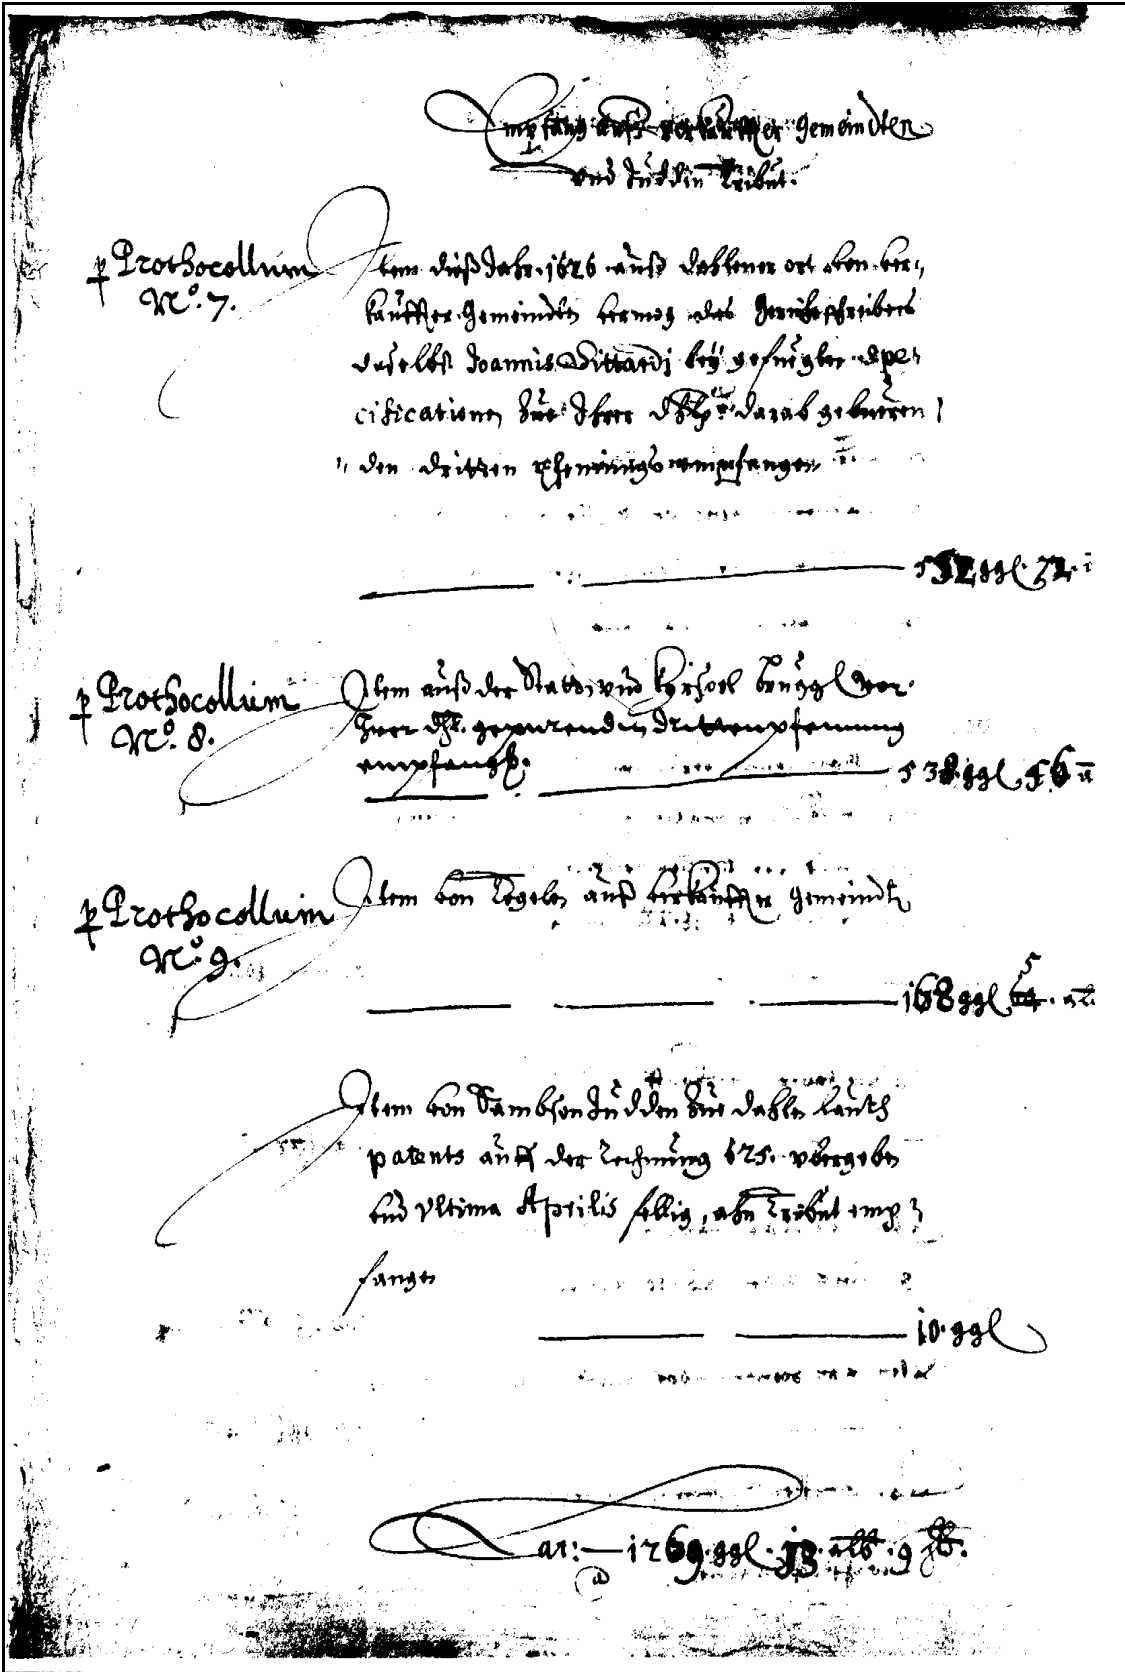 Empfang auß verkauffter Gemeindten
vnd Judden Tribut.
p Prothocollum
No. 7.
Item dieß Jahr 1626 auß Dahlener ort von ver„
kauffter Gemeindten vermog des Gerichtschreibers
daselbst Joannis Dittardj bey gefuegter spe„
cificationen zue Ihrer darab gebueren
„den dritten pfennings empfangen
ggl.
p Prothocollum
No. 8.
Item auß der Statt vnd Bruggl vor
Ihrer gepurenden drittenpfenning
empfangen.
538 ggl 56
p Prothocollum
No. 9.
Item von Tegelen auß verkauffter Gemeindte
168 ggl 5 alb.
Item von Sambson Judden zue Dahlen lauth
patents auff der rechnung 625. vbergeben
vnd vltima Aprilis fellig, ahn Tribut emp
fangen
10. ggl
Lat: — 1269 ggl. 13. alb. 9 hlr.